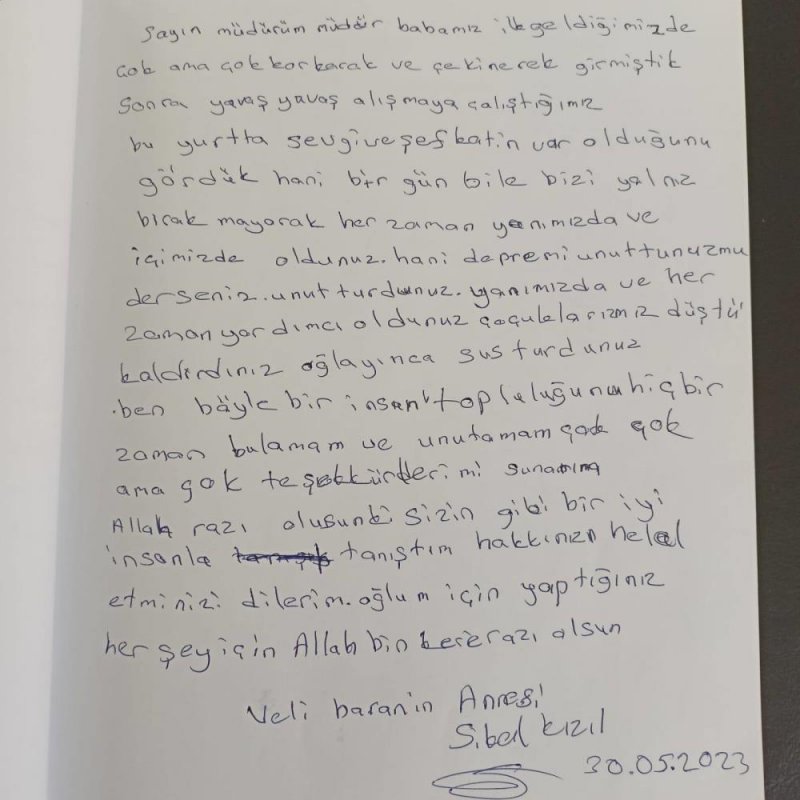 Sayın müdürüm müdür babamız ilk geldiğimizde
çok ama çok korkarak ve çekinerek girmiştik
Sonra yavaş yavaş alışmaya çalıştığımız
bu yurtta sevgi ve şefkatin var olduğunu
gördük hani bir gün bile bizi yalnız
bırak mayarak her zaman yanımızda ve
içimizde oldunuz. hani depremi unuttunuzmu
derseniz. unut turdunuz. yanımızda ve her
zaman yardımcı oldunuz çocuklarımız düştü
kaldırdınız ağlayınca sus turdunuz
. ben böyle bir insan topluluğunu hiç bir
zaman bulamam ve unutamam çok çok
ama çok teşekkürlerimi sunarım
Allah razı olusunki sizin gibi bir iyi
insanla tanıştım hakkınızı helal
etminizi dilerim. oğlum için yaptığınız
her şey için Allah bin kere razı olsun
Veli baran'ın Annesi
Sibel Kızıl
30.05.2023